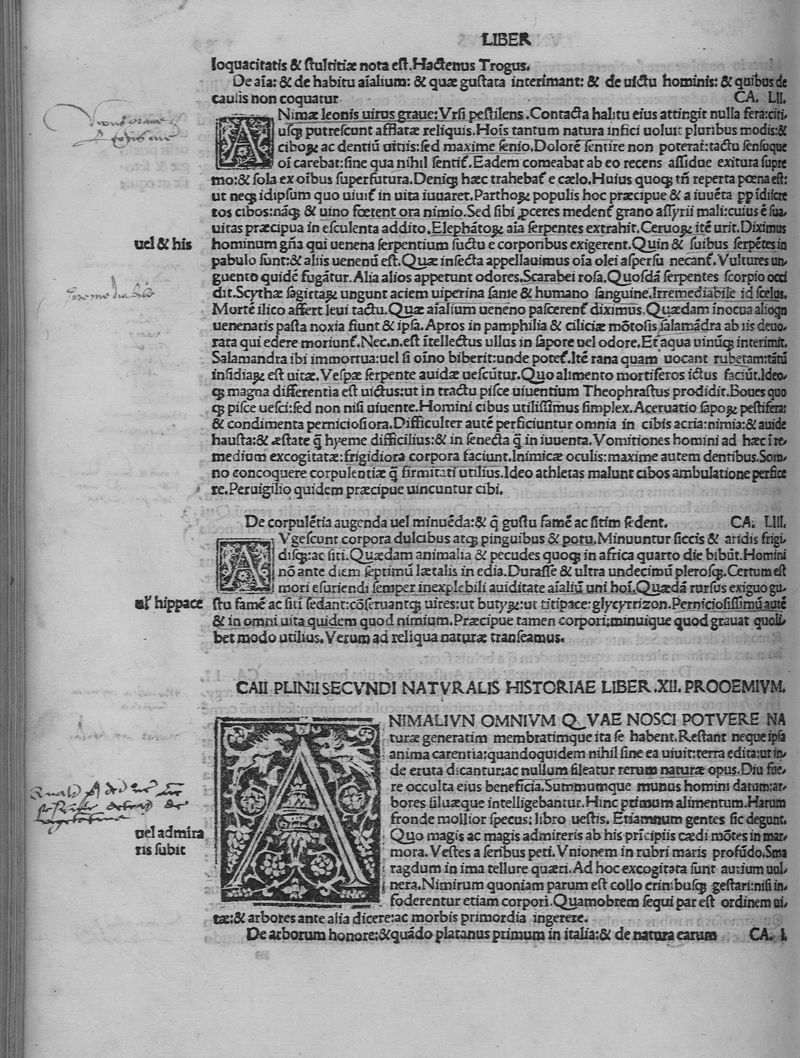 LIBER
loquacitatis & ſtultitiæ nota eſt. Hactenus Trogus.
De aīa: & de habitu aīalium: & quæ guſtata interimant: & de uictu hominis: & quibus de
caulis non coquatur CA. LII.
ANimæ leonis uirus graue: Vrſi peſtilens. Contacta halitu eius attingit nulla fera: citi⸗
uſq; putreſcunt afflatæ reliquis. Hoīs tantum natura infici uoluit pluribus modis: &
cibo℞ ac dentiū uitiis: ſed maxime ſenio. Dolorē ſentire non poterat: tactu ſenſuque
oī carebat: ſine qua nihil ſentit̃. Eadem comeabat ab eo recens aſſidue exitura ſupre
mo: & ſola ex oībus ſuperfutura. Deniq; hæc trahebat̃ e cælo. Huius quoq; tn̄ reperta pœna eſt:
ut neq; idipſum quo uiuit̃ in uita iuuaret. Partho℞ populis hoc præcipue & a iuuēta pp īdiſcre
tos cibos: nāq; & uino fœtent ora nimio. Sed ſibi ꝓceres medent̃ grano aſſyrii mali: cuius ē ſua⸗
uitas præcipua in eſculenta addito. Elephāto℞ aīa ſerpentes extrahit. Ceruo℞ itē urit. Diximus
uel & his
hominum gn̄a qui uenena ſerpentium ſuctu e corporibus exigerent. Quin & ſuibus ſerpētes in
pabulo ſunt: & aliis uenenū eſt. Quæ inſecta appellauimus oīa olei aſperſu necant̃. Vultures un⸗
guento quidē fugātur. Alia alios appetunt odores. Scarabei roſa. Quoſdā ſerpentes ſcorpio occi
dit. Scythæ ſagittas ungunt aciem uiperina ſanie & humano ſanguine. Irremediabile id ſcelus.
Mortē ilico affert leui tactu. Quæ aīalium ueneno paſcerent̃ diximus. Quædam īnocua alioqn
uenenatis paſta noxia fiunt & ipſa. Apros in pamphilia & ciliciæ mōtoſis ſalamādra ab iis deuo⸗
rata qui edere moriunt̃. Nec. n. eſt ītellectus ullus in ſapore uel odore. Et aqua uinūq; interimit.
Salamandra ibi immortua: uel ſi oīno biberit: unde potet̃. Itē rana quam uocant rubetam: tātū
inſidia℞ eſt uitæ. Veſpæ ſerpente auidæ ueſcūtur. Quo alimento mortiferos ictus faciūt. Ideo⸗
q; magna differentia eſt uictus: ut in tractu piſce uiuentium Theophraſtus prodidit. Boues quo
q; piſce ueſci: ſed non niſi uiuente. Homini cibus utiliſſimus ſimplex. Aceruatio ſapo℞ peſtifera:
& condimenta pernicioſiora. Difficulter autē perficiuntur omnia in cibis acria: nimia: & auide
hauſta: & æſtate q̄ hyeme difficilius: & in ſenecta q̄ in iuuenta. Vomitiones homini ad hæc ī re⸗
medium excogitatæ: frigidiora corpora faciunt. Inimicæ oculis: maxime autem dentibus. Som⸗
no concoquere corpulentiæ q̄ firmitati utilius. Ideo athletas malunt cibos ambulatione perfice
re. Peruigilio quidem præcipue uincuntur cibi.
De corpulētia augenda uel minuēda: & q̄ guſtu famē ac ſitim ſedent. CA. LIII.
AVgeſcunt corpora dulcibus atq; pinguibus & potu. Minuuntur ſiccis & aridis frigi⸗
diſq; ac ſiti. Quædam animalia & pecudes quoq; in africa quarto die bibūt. Homini
nō ante diem ſeptimū lætalis inedia. Duraſſe & ultra undecimū pleroſq;. Certum eſt
mori eſuriendi ſemper inexplebili auiditate aīaliū uni hoī. Quædā rurſus exiguo gu⸗
al' hippace
ſtu famē ac ſiti ſedant: cōſeruantq; uires: ut buty℞: ut titipace: glycyrrizon. Pernicioſiſſimū autē
& in omni uita quidem quod nimium. Præcipue tamen corpori: minuique quod grauat quoli⸗
bet modo utilius. Verum ad reliqua naturæ tranſeamus.
CAII PLINII SECVNDI NATVRALIS HISTORIAE LIBER .XII. PROOEMIVM.
ANIMALIVN OMNIVM QVAE NOSCI POTVERE NA
turæ generatim membratimque ita ſe habent. Reſtant neque ipſa
anima carentia: quandoquidem nihil ſine ea uiuit: terra edita: ut in⸗
de eruta dicantur: ac nullum ſileatur rerum naturæ opus. Diu fue⸗
re occulta eius beneficia. Summumque munus homini datum: ar⸗
bores ſiluæque intelligebantur. Hinc primum alimentum. Harum
fronde mollior ſpecus: libro ueſtis. Etiamnum gentes ſic degunt.
uel admira
ris ſubit
Quo magis ac magis admireris ab his prīcipiis cædi mōtes in mar⸗
mora. Veſtes a ſeribus peti. Vnionem in rubri maris profūdo. Sma
ragdum in ima tellure quæri. Ad hoc excogitata ſunt aurium uul⸗
nera. Nimirum quoniam parum eſt collo crinibuſq; geſtari: niſi in⸗
foderentur etiam corpori. Quamobrem ſequi par eſt ordinem ui⸗
tæ: & arbores ante alia dicere: ac morbis primordia ingerere.
De arborum honore: & quādo platanus primum in italia: & de natura earum CA. I.